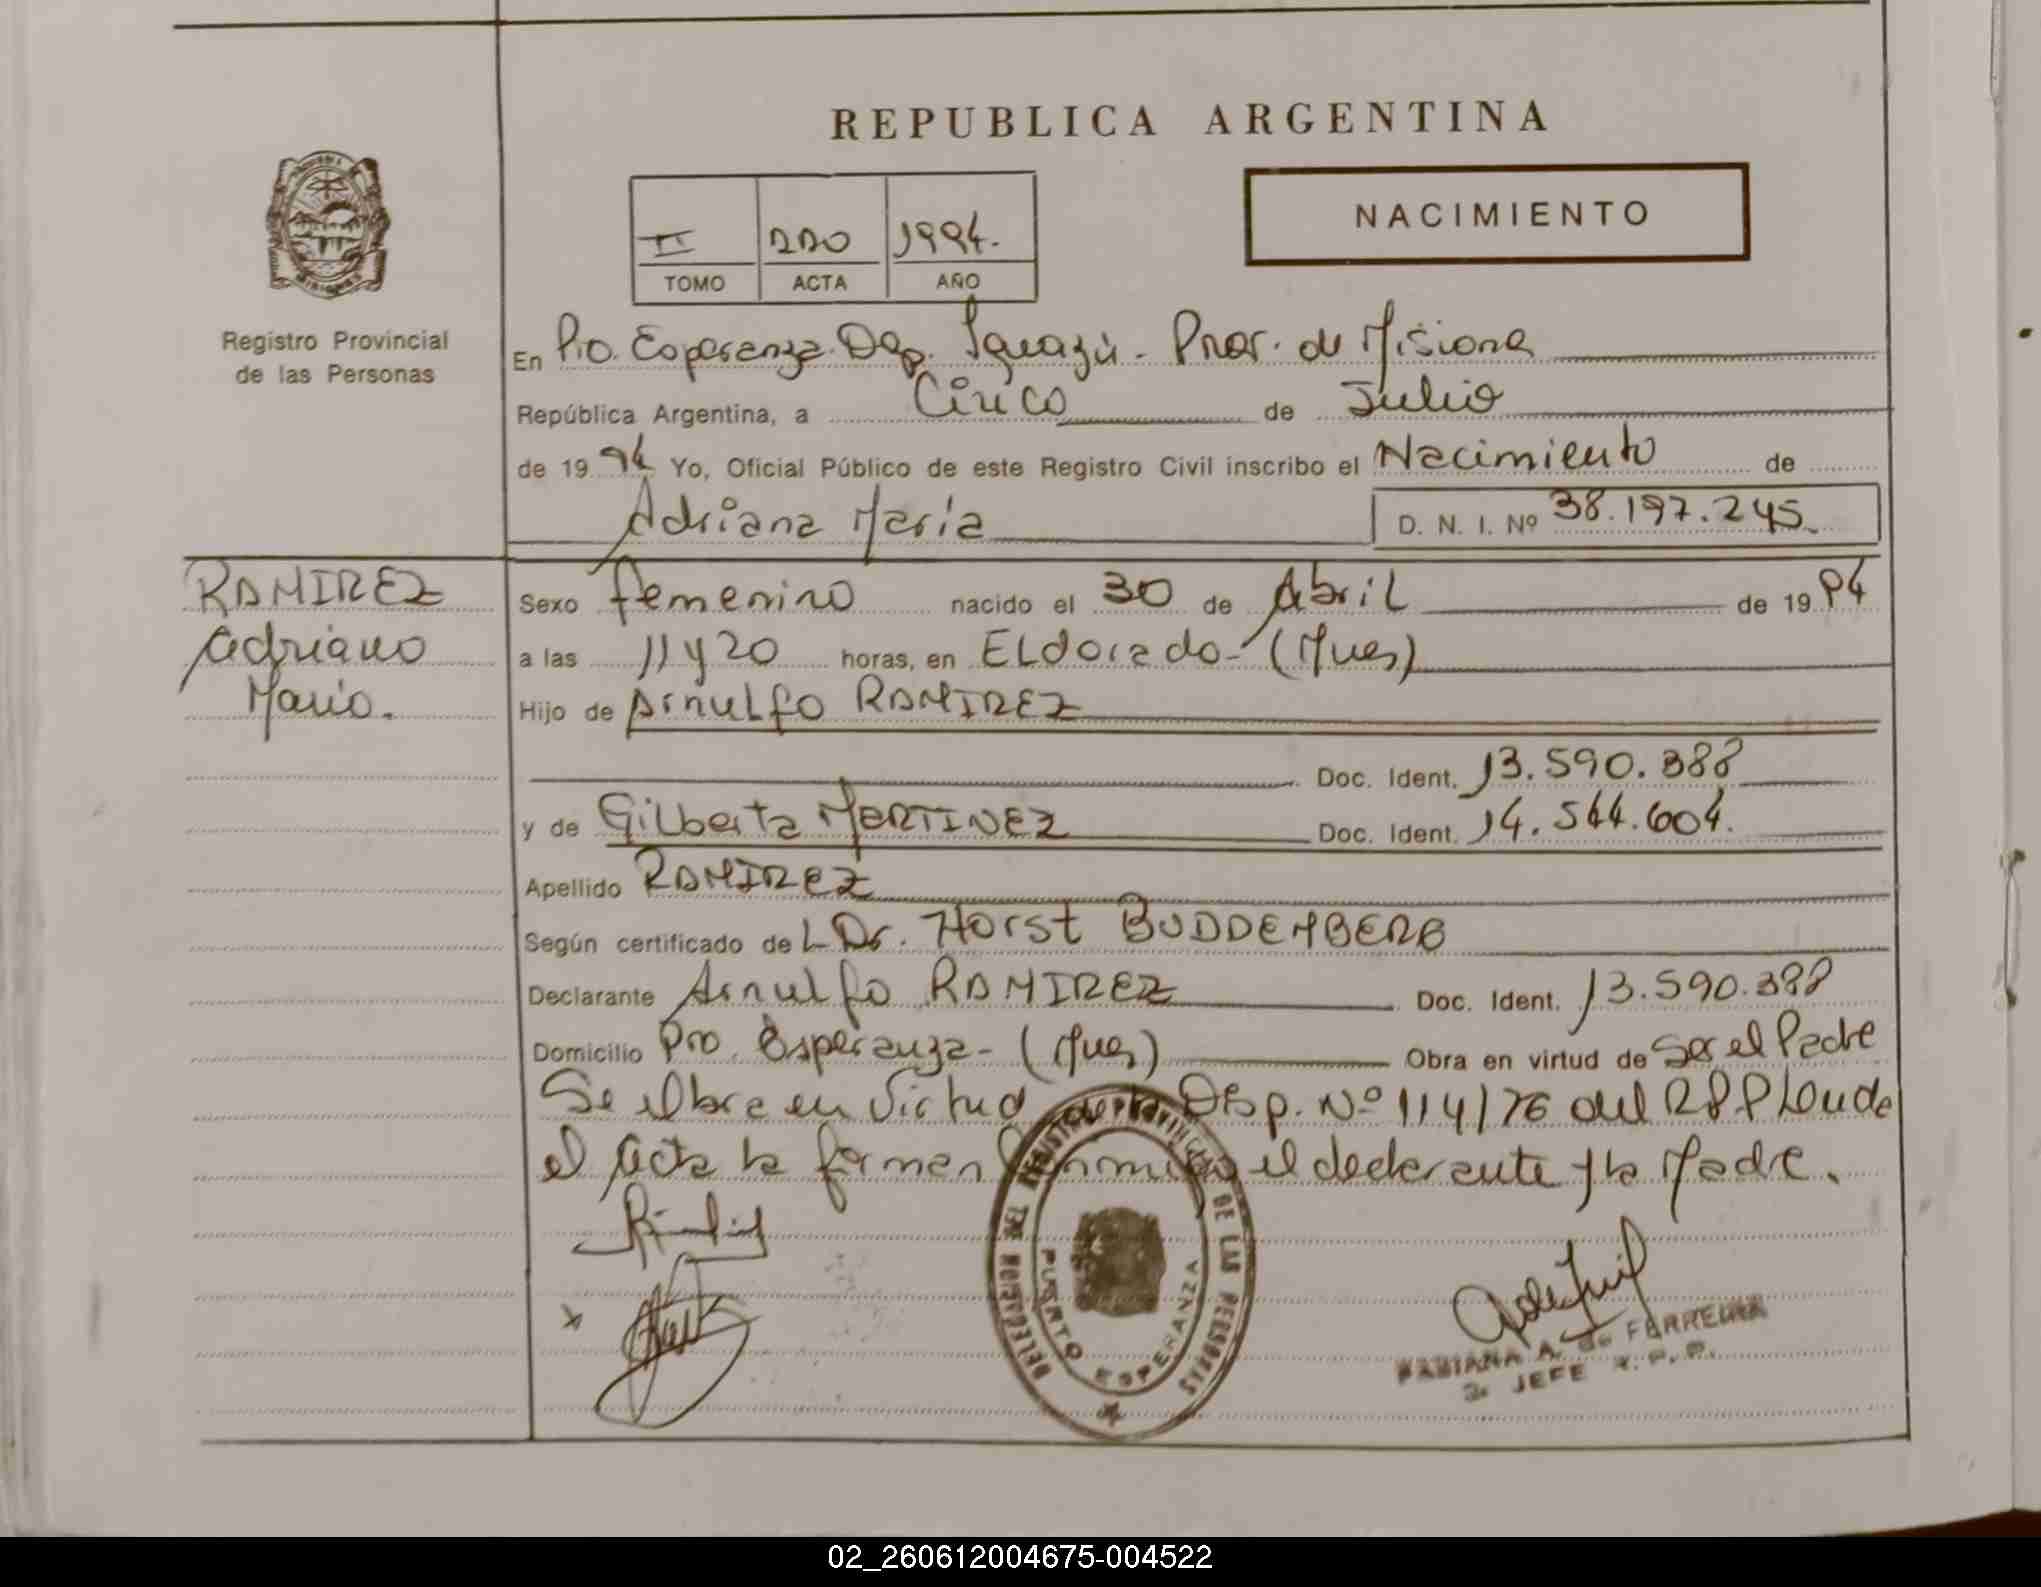 REPUBLICA ARGENTINA
NACIMIENTO
II 220 1994.
TOMO ACTA AÑO
Registro Provincial
de las Personas
En Pto. Esperanza. Dep. Iguazú - Prov. de Misiones
República Argentina, a Cinco de Julio
de 1994 Yo, Oficial Público de este Registro Civil inscribo el Nacimiento de
Adriana María D. N. I. Nº 38.197.245.
RAMIREZ
Adriana
María.
Sexo femenino nacido el 30 de Abril de 1994
a las 11 y 20 horas, en ELdorado - (Mnes)
Hijo de ArnuLfo RAMIREZ
Doc. Ident. 13.590.388
y de GiLberta MARTINEZ Doc. Ident. 14.544.604.
Apellido RAMIREZ
Según certificado de L Dr. Horst BUDDEMBERG
Declarante Arnulfo RAMIREZ Doc. Ident. 13.590.388
Domicilio Pto. Esperanza - (Mnes) Obra en virtud de Ser el Padre
Se labra en Virtud Disp. Nº 114/76 del R.P.P
el Acta la firman el declarante y la Madre.
DELEGACION DEL REGISTRO PROVINCIAL DE LAS PERSONAS
PUERTO ESPERANZA
FABIANA A. de FERREIRA
JEFE R. P. P.
02_260612004675-004522